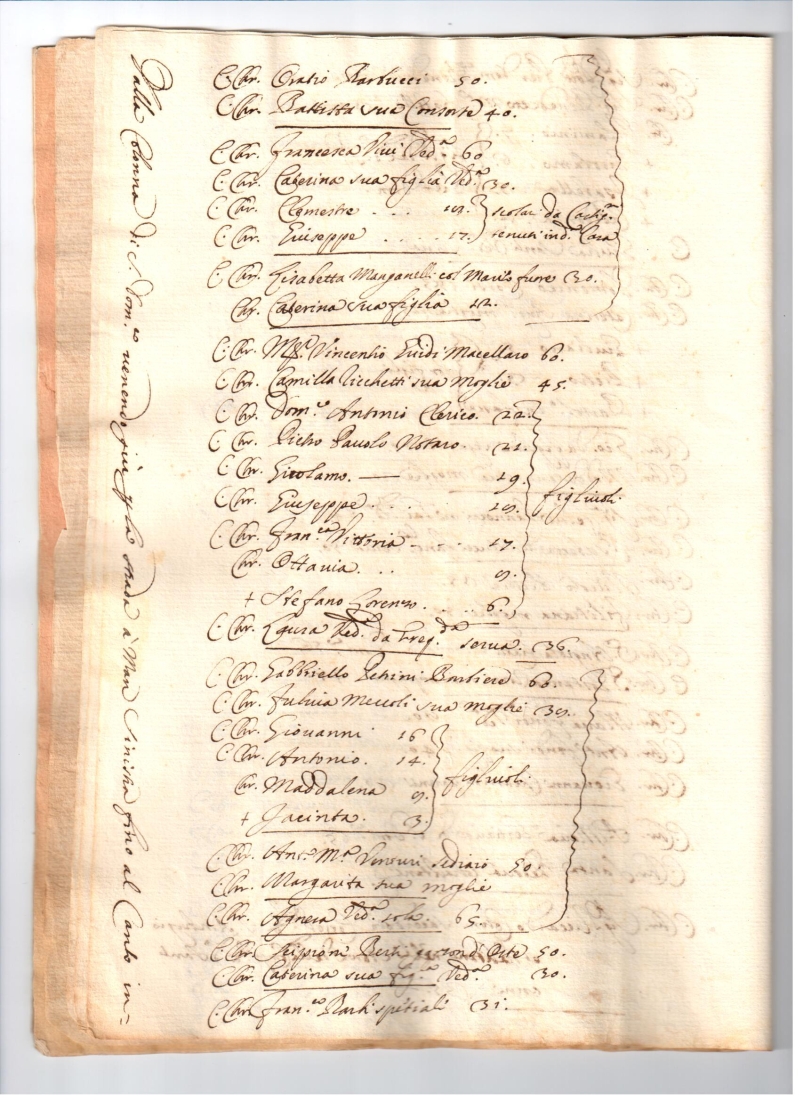 Dalla Colonna di S. Dom.co venendo giù p la strada à Man Sinistra fino al Canto in=
C. Chr. Oratio Barbucci 50.
C. Chr. Battista sua Consorte 40.
C. Chr. Francesca Vivi Ved.a 60
C. Chr. Caterina sua figlia Ved.a 30.
C. Chr. Clemestre . . . 19. scolari da Castig.n
C. Chr. Giuseppe . . . 17. tenuti in d.a Casa
C. Chr. Lisabetta Manganelli col Marito fuore 30.
Chr. Caterina sua figlia 12.
C. Chr. M.s Vincentio Guidi Macellaro 60.
C. Chr. Camilla sua Moglie 45.
C. Chr. Dom.co Antonio Clerico. 22.
C. Chr. Pietro Pavolo Notaro. 21.
C. Chr. Girolamo. — 19. figliuoli
C. Chr. Giuseppe . . 19.
C. Chr. Fran.ca Vittoria . . . 17.
Chr. Ottavia . . 9.
+ Stefano Lorenzo . . . 6.
C. Chr. Laura Ved.a da serva. 36.
C. Chr. Gabbriello Petrini Barbiere 60.
C. Chr. Fulvia Meccoli sua moglie 39.
C. Chr. Giovanni 16
C. Chr. Antonio. 14. figliuoli
Chr. Maddalena 9.
+ Jacinta. 3.
C. Chr. Ant.o M.a Venturi sediaio 50
C. Chr. Margarita sua moglie
C. Chr. Agnesa Ved.a sola. 65.
C. Chr. Scipione Berti 50.
C. Chr. Caterina sua fig.a Ved.a 30.
C. Chr. Fran.co spetiali 31.